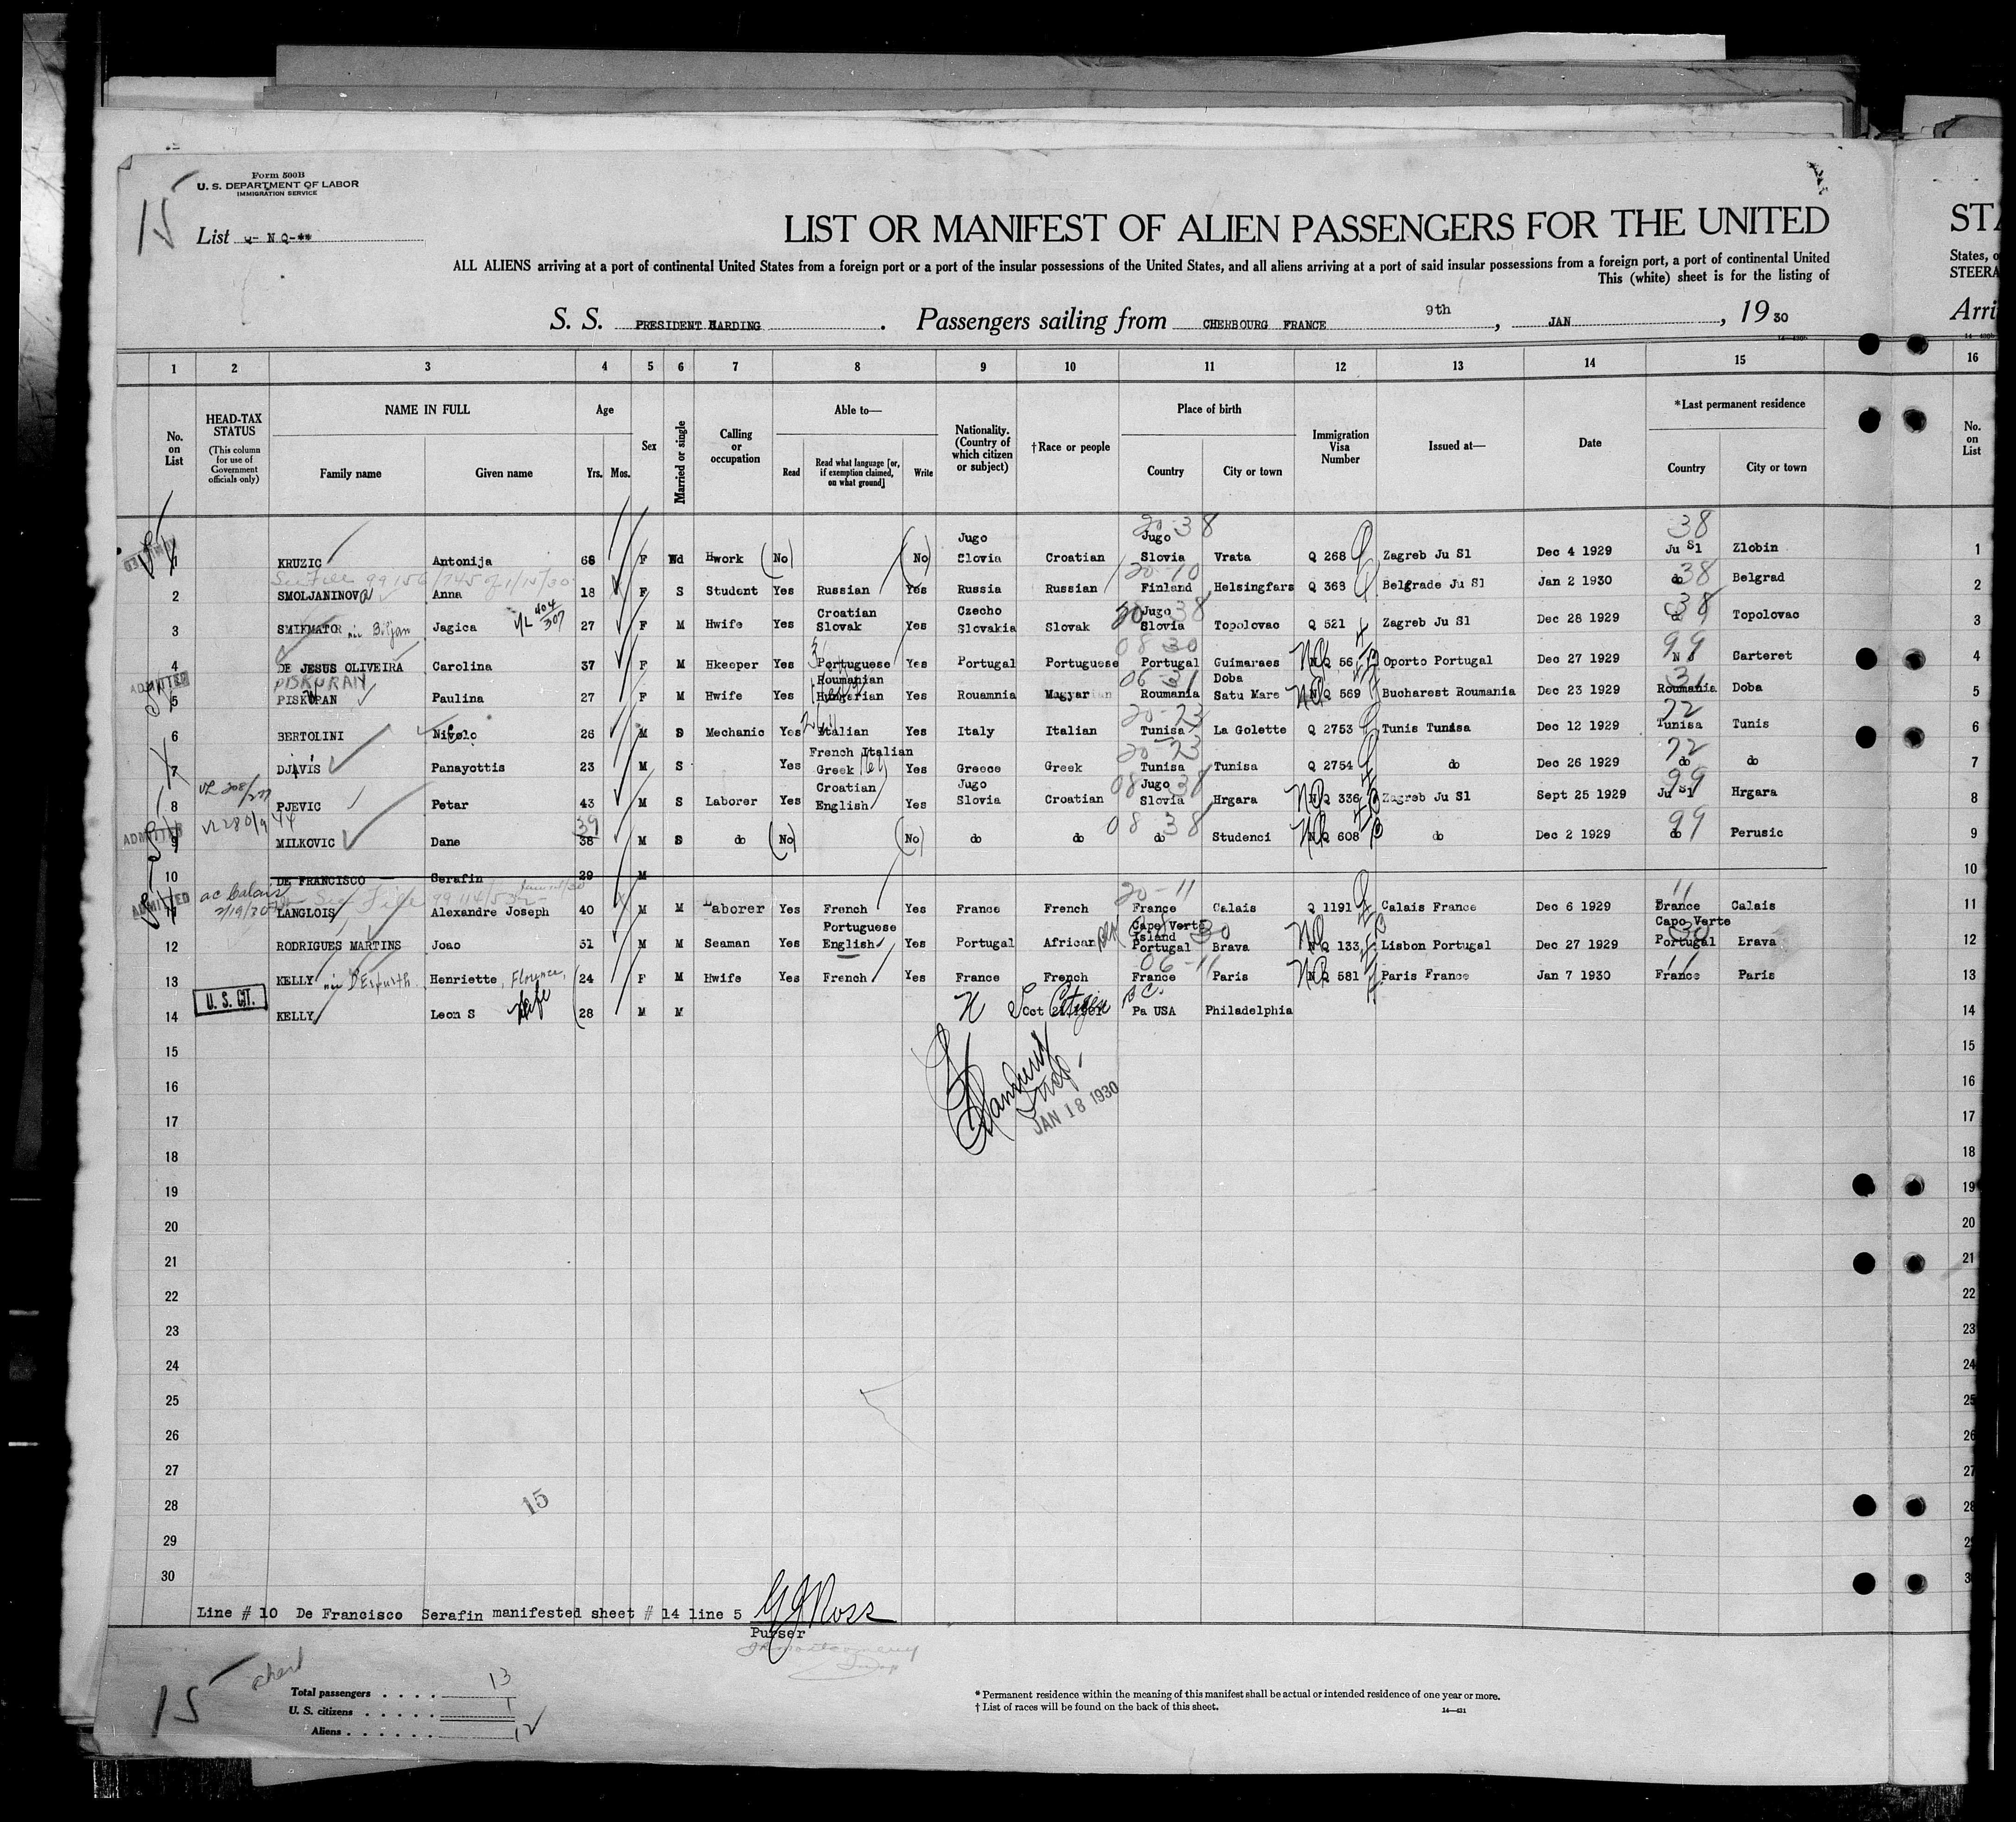 Form 500B
U. S. DEPARTMENT OF LABOR
IMMIGRATION SERVICE
15
List Q- N Q-**
LIST OR MANIFEST OF ALIEN PASSENGERS FOR THE UNITED
STA
ALL ALIENS arriving at a port of continental United States from a foreign port or a port of the insular possessions of the United States, and all aliens arriving at a port of said insular possessions from a foreign port, a port of continental United
States, o
This (white) sheet is for the listing of
STEERA
S. S. PRESIDENT HARDING. Passengers sailing from CHERBOURG FRANCE 9th, JAN, 19 30
Arri
1 2 3 4 5 6 7 8 9 10 11 12 13 14 15 16
No. on List
HEAD-TAX STATUS (This column for use of Government officials only)
NAME IN FULL
Family name Given name
Age
Yrs. Mos.
Sex
Married or single
Calling or occupation
Able to—
Read
Read what language [or, if exemption claimed, on what ground]
Write
Nationality. (Country of which citizen or subject)
†Race or people
Place of birth
Country City or town
Immigration Visa Number
Issued at—
Date
*Last permanent residence
Country City or town
No. on List
1 KRUZIC Antonija 68 F Wd Hwork (No) (No) Jugo Slovia Croatian 20-38 Jugo Slovia Vrata Q 268 Zagreb Ju Sl Dec 4 1929 38 Ju Sl Zlobin 1
See File 99156/745 1/15/30
2 SMOLJANINOVA Anna 18 F S Student Yes Russian Yes Russia Russian 20-10 Finland Helsingfars Q 363 Belgrade Ju Sl Jan 2 1930 38 do Belgrad 2
3 Jagica VL 404/307 27 F M Hwife Yes Croatian Slovak Yes Czecho Slovakia Slovak 20 38 Jugo Slovia Topolovac Q 521 Zagreb Ju Sl Dec 28 1929 38 Topolovac 3
4 DE JESUS OLIVEIRA Carolina 37 F M Hkeeper Yes Portuguese Yes Portugal Portuguese 08 30 Portugal Guimaraes NQ 56 Oporto Portugal Dec 27 1929 99 Carteret 4
ADMITTED
PISKURAN
5 PISKUPAN Paulina 27 F M Hwife Yes Roumanian Hungarian Yes Rouamnia Magyar 06-31 Roumania Doba Satu Mare NQ 569 Bucharest Roumania Dec 23 1929 31 Roumania Doba 5
6 BERTOLINI Nicolo 26 M S Mechanic Yes Italian Yes Italy Italian 20-23 Tunisa La Golette Q 2753 Tunis Tunisa Dec 12 1929 72 Tunisa Tunis 6
7 DJAVIS Panayottis 23 M S Yes French Italian Greek Yes Greece Greek 20-23 Tunisa Tunisa Q 2754 do Dec 26 1929 72 do do 7
8 PJEVIC Petar 43 M S Laborer Yes Croatian English Yes Jugo Slovia Croatian 08 38 Jugo Slovia Hrgara NQ 336 Zagreb Ju Sl Sept 25 1929 99 Ju Sl Hrgara 8
ADMITTED
9 MILKOVIC Dane 39 38 M S do (No) (No) do do 08 38 do Studenci NQ 608 do Dec 2 1929 99 do Perusic 9
10 DE FRANCISCO Serafin 29 M 10
ADMITTED
11 LANGLOIS Alexandre Joseph 40 M M Laborer Yes French Yes France French 20-11 France Calais Q 1191 Calais France Dec 6 1929 11 France Calais 11
12 RODRIGUES MARTINS Joao 31 M M Seaman Yes Portuguese English Yes Portugal African Cape Verte Island Portugal Brava NQ 133 Lisbon Portugal Dec 27 1929 30 Cape Verte Portugal Brava 12
13 KELLY Henriette, Florence, 24 F M Hwife Yes French Yes France French 06-11 France Paris NQ 581 Paris France Jan 7 1930 11 France Paris 13
U. S. CIT.
14 KELLY Leon S 28 M M Citizen Pa USA Philadelphia 14
JAN 18 1930
15 15
16 16
17 17
18 18
19 19
20 20
21 21
22 22
23 23
24 24
25 25
26 26
27 27
28 28
15
29 29
30
Line # 10 De Francisco Serafin manifested sheet # 14 line 5 Ross
Purser
15
Total passengers . . . . 13
U. S. citizens . . . . . 1
Aliens . . . . . . 12
* Permanent residence within the meaning of this manifest shall be actual or intended residence of one year or more.
† List of races will be found on the back of this sheet.
14—431